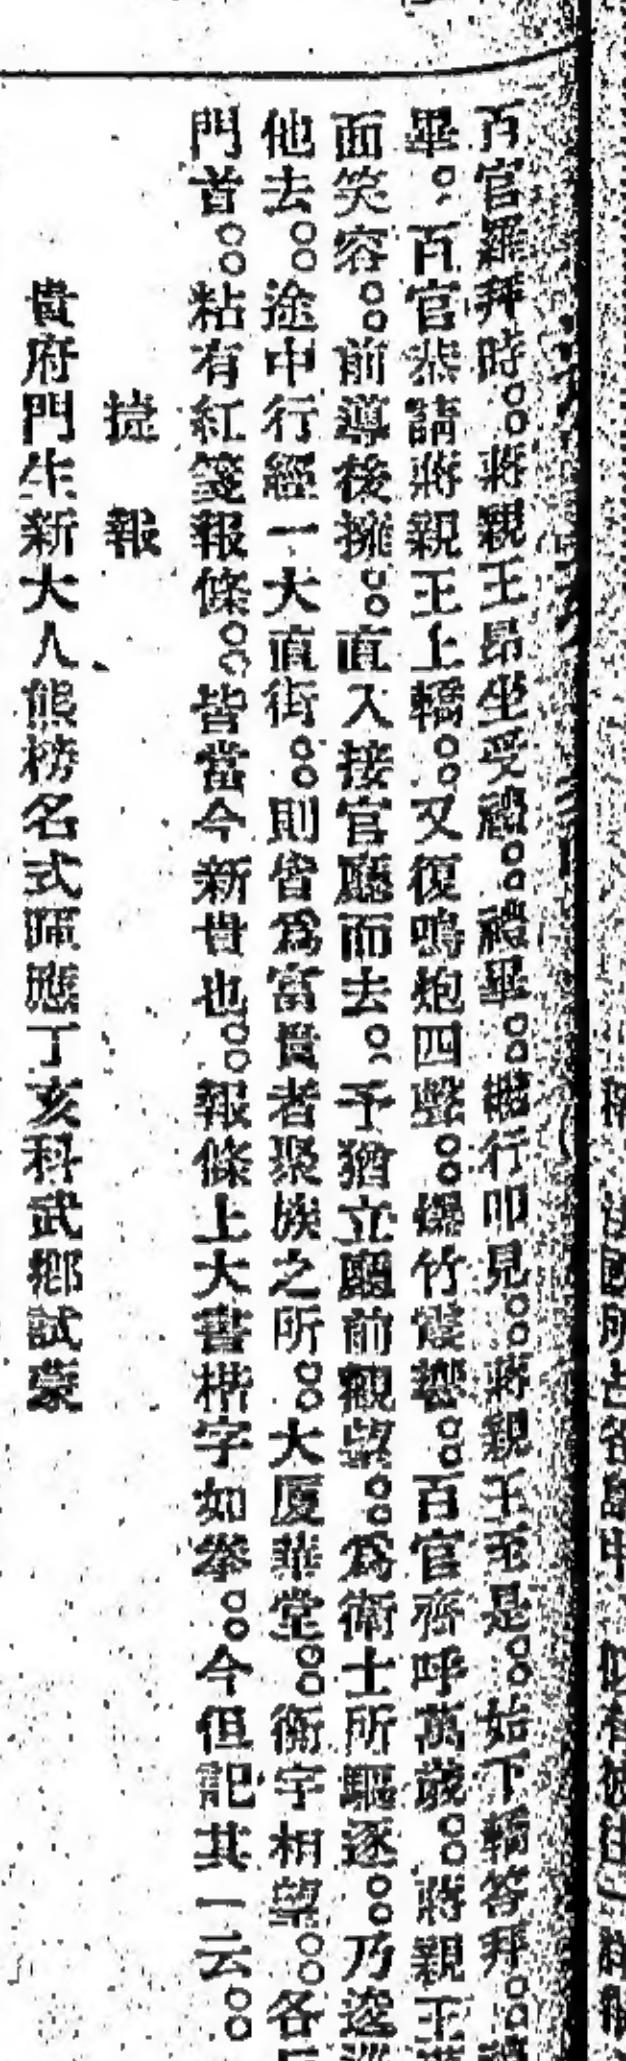 百官羅拜時。。蔣親王昂坐受禮。。禮畢。。機行叩見。。蔣親王至是。。始下轎答拜。。
畢。。百官恭請蔣親王上轎。。又復鳴炮四聲。。爆竹震響。。百官齊呼萬歲。。蔣親王
面笑容。。前導後擁。。直入接官廳而去。。予猶立廳前觀望。。爲衛士所驅逐。。乃逡巡
他去。。途中行經一大直街。。則皆爲富貴者聚族之所。。大厦華堂。。衡宇相望。。各
門首。。粘有紅箋報條。。皆當今新貴也。。報條上大書楷字如拳。。今但記其一云。。
捷報
貴府門生新大人熊榜名式 應丁亥科武鄉試蒙